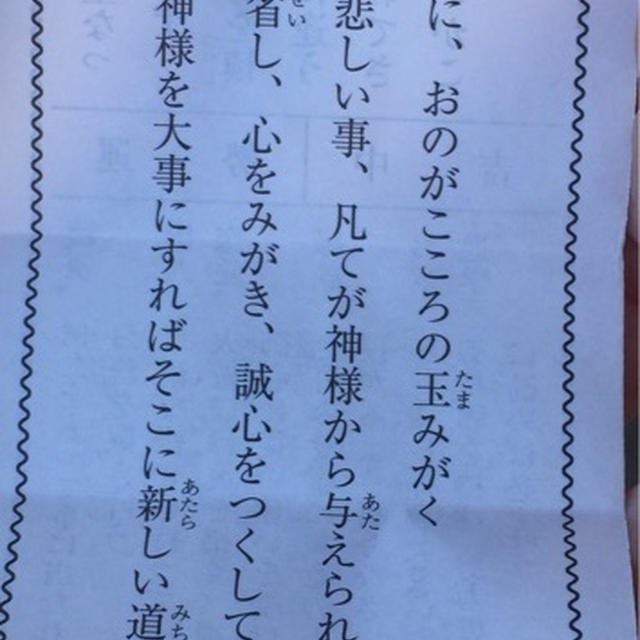 に、おのがこころの玉みがく
悲しい事、凡てが神様から与えられ
省し、心をみがき、誠心をつくして
神様を大事にすればそこに新しい道